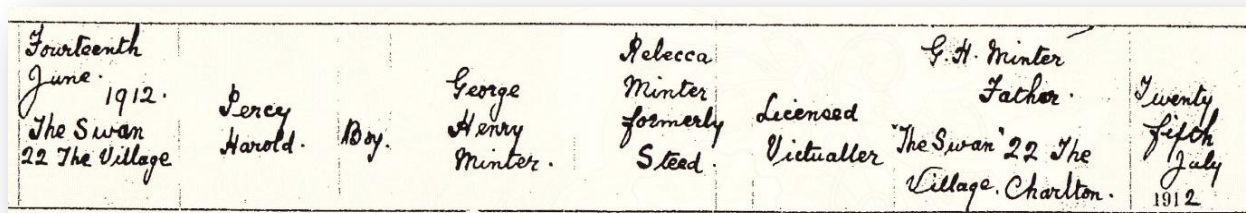 Fourteenth
June.
1912.
The Swan
22 The Village
Percy
Harold.
Boy.
George
Henry
Minter.
Rebecca
Minter
formerly
Steed.
Licensed
Victualler
G. H. Minter
Father.
"The Swan" 22 The
Village. Charlton.
Twenty
fifth
July
1912